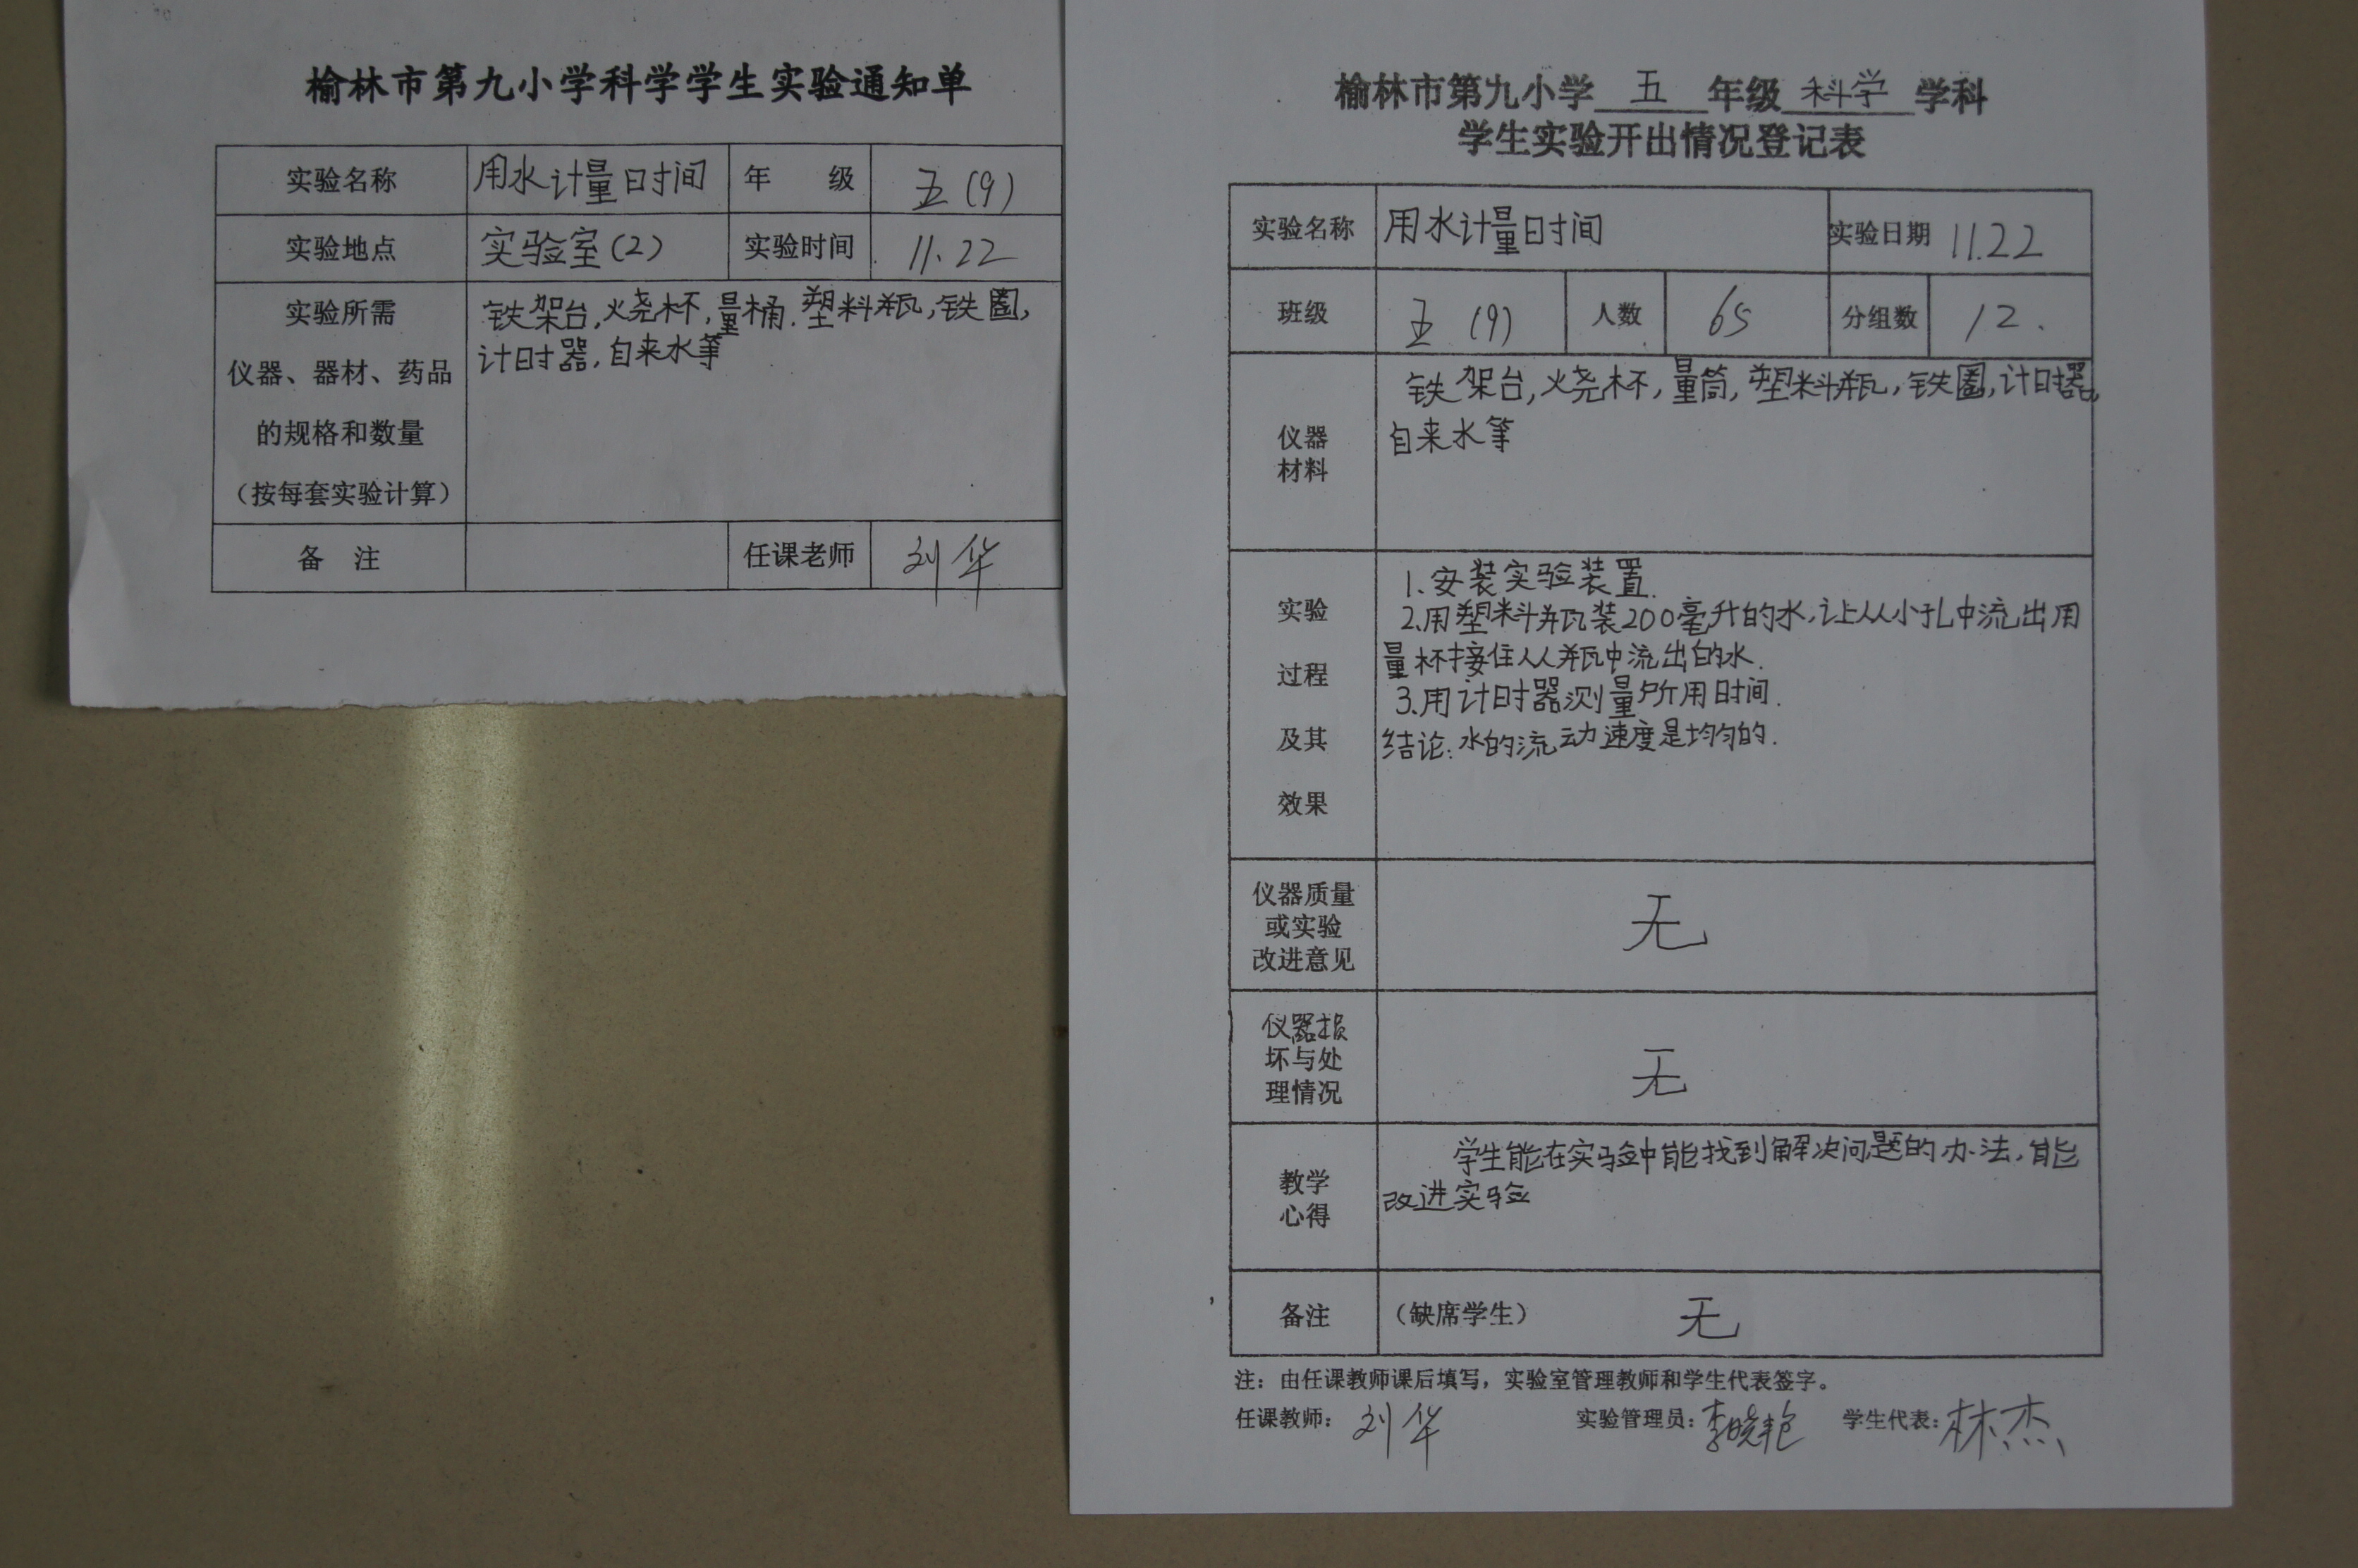 榆林市第九小学科学学生实验通知单
实验名称 用水计量时间 年 级 五(9)
实验地点 实验室(2) 实验时间 11.22
实验所需
仪器、器材、药品
的规格和数量
(按每套实验计算)
铁架台,烧杯,量桶.塑料瓶,铁圈,
计时器,自来水等
备 注 任课老师 刘华
榆林市第九小学 五 年级 科学 学科
学生实验开出情况登记表
实验名称 用水计量时间 实验日期 11.22
班级 五(9) 人数 65 分组数 12.
仪器
材料
铁架台,烧杯,量筒,塑料瓶,铁圈,计时器,
自来水等
实验
过程
及其
效果
1.安装实验装置.
2.用塑料瓶装200毫升的水,让从小孔中流出用
量杯接住从瓶中流出的水.
3.用计时器测量所用时间.
结论:水的流动速度是均匀的.
仪器质量
或实验
改进意见
无
仪器损
坏与处
理情况
无
教学
心得
学生能在实验中能找到解决问题的办法,能
改进实验
备注 (缺席学生) 无
注:由任课教师课后填写,实验室管理教师和学生代表签字。
任课教师: 刘华 实验管理员: 李晓艳 学生代表: 林杰